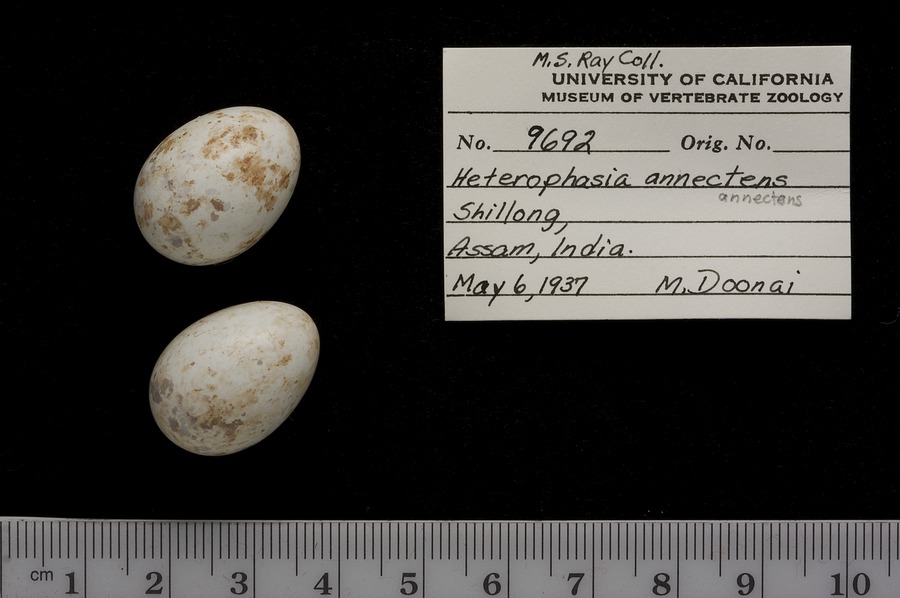 M.S. Ray Coll.
UNIVERSITY OF CALIFORNIA
MUSEUM OF VERTEBRATE ZOOLOGY
No. 9692 Orig. No.
Heterophasia annectens
annectens
Shillong,
Assam, India.
May 6, 1937 M. Doonai
cm 1 2 3 4 5 6 7 8 9 10